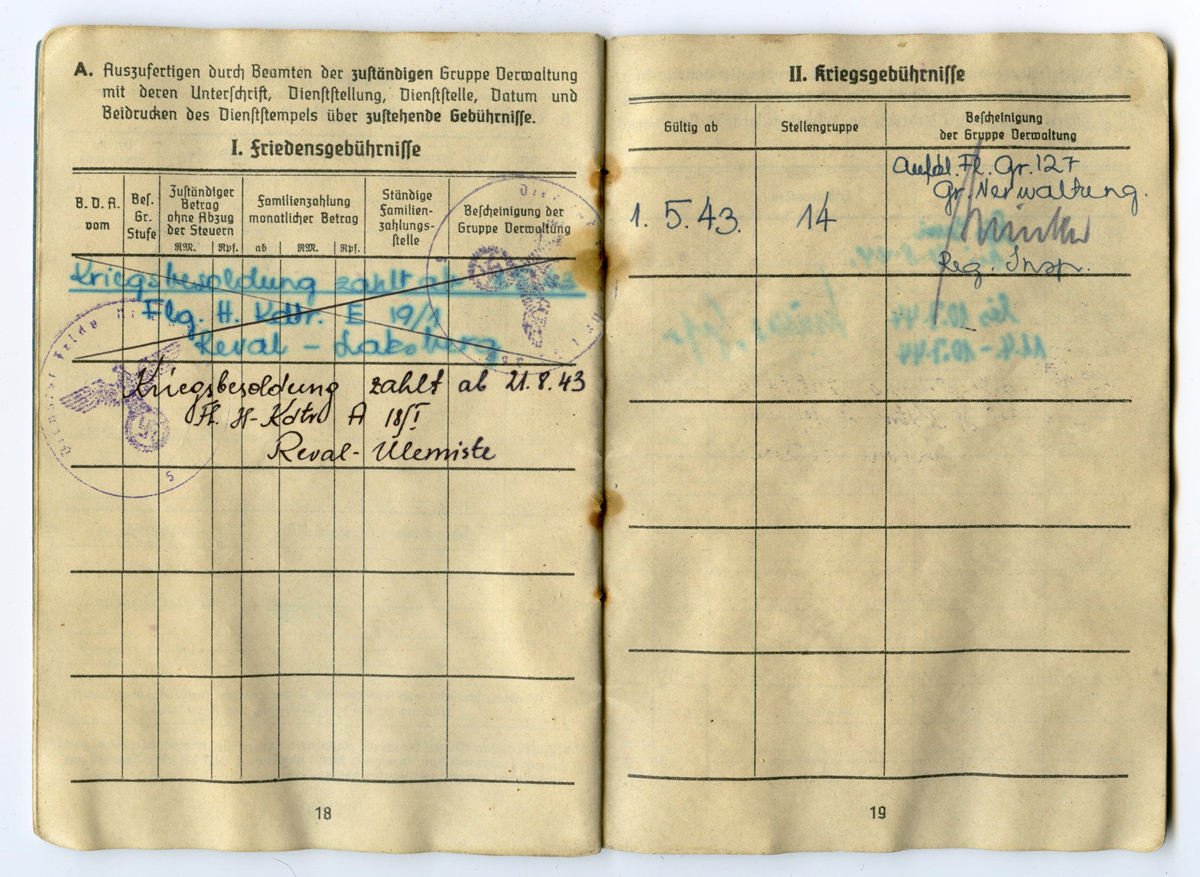 A. Auszufertigen durch Beamten der zuständigen Gruppe Verwaltung
mit deren Unterschrift, Dienststellung, Dienststelle, Datum und
Beidrucken des Dienststempels über zustehende Gebührnisse.
I. Friedensgebührnisse
B. D. A. vom
Bes. Gr. Stufe
Zuständiger Betrag ohne Abzug der Steuern
RM. Rpf.
Familienzahlung monatlicher Betrag
ab RM. Rpf.
Ständige Familien-zahlungs-stelle
Bescheinigung der Gruppe Verwaltung
Kriegsbesoldung zahlt ab 43
Flg. H. Kdtr. E 19/I
Reval - Laksberg
Kriegsbesoldung zahlt ab 21.8.43
Fl. H-Kdtr A 18/I
Reval-Ülemiste
18
II. Kriegsgebührnisse
Gültig ab
Stellengruppe
Bescheinigung
der Gruppe Verwaltung
1. 5. 43. 14
Ausbl. Fl. Gr. 127
Gr. Verwaltung.
Reg. Insp.
19